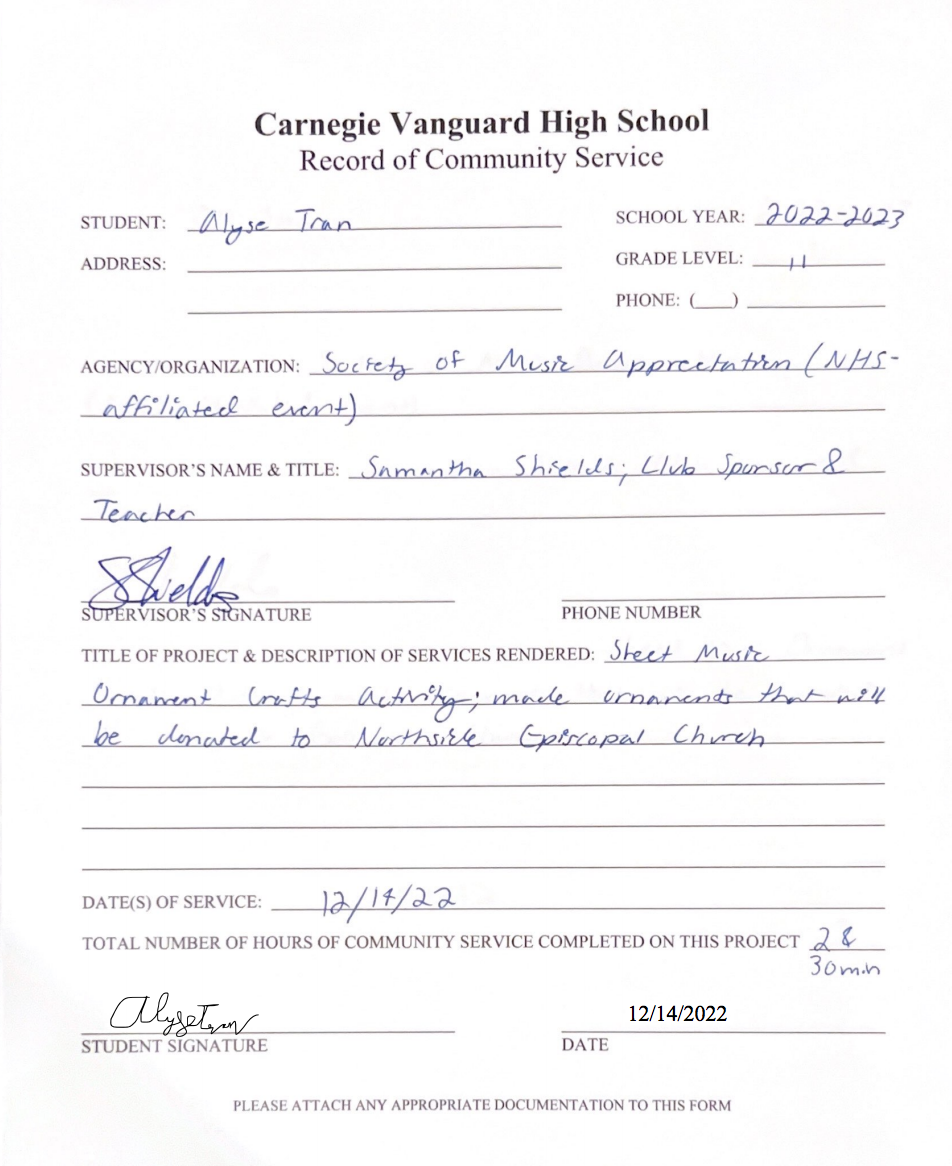 Carnegie Vanguard High School
Record of Community Service
STUDENT: Alyse Tran
SCHOOL YEAR: 2022-2023
ADDRESS:
GRADE LEVEL: 11
PHONE: (___)
AGENCY/ORGANIZATION: Society of Music Appreciation (NHS-
affiliated event)
SUPERVISOR'S NAME & TITLE: Samantha Shields; Club Sponsor &
Teacher
SShields
SUPERVISOR'S SIGNATURE
PHONE NUMBER
TITLE OF PROJECT & DESCRIPTION OF SERVICES RENDERED: Sheet Music
Ornament Crafts Activity; made ornaments that will
be donated to Northside Episcopal Church
DATE(S) OF SERVICE: 12/14/22
TOTAL NUMBER OF HOURS OF COMMUNITY SERVICE COMPLETED ON THIS PROJECT 2 &
30 min
Alyse Tran
12/14/2022
STUDENT SIGNATURE
DATE
PLEASE ATTACH ANY APPROPRIATE DOCUMENTATION TO THIS FORM